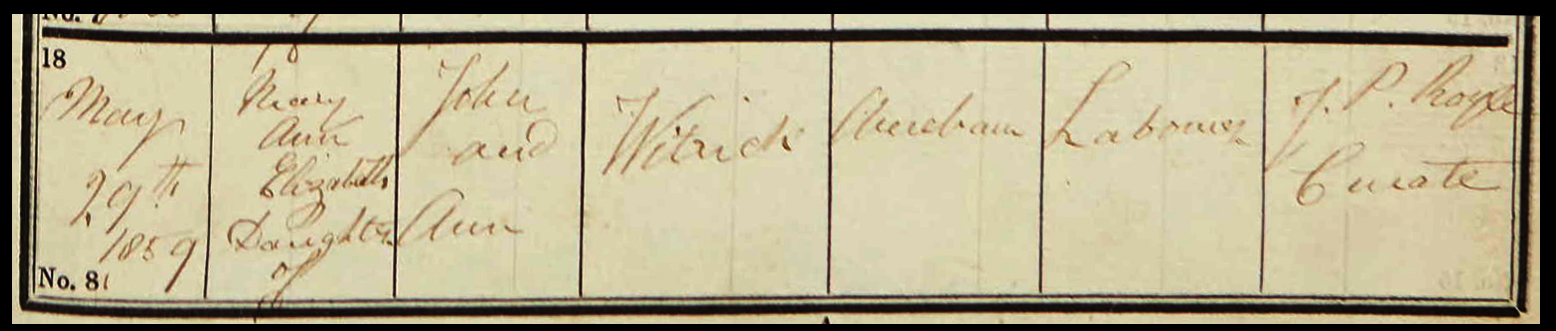 No.
of
18
May
29th
1859
No. 81
Mary
Ann
Elizabeth
Daughter
of
John
and
Ann
Witrick
Labourer
J. P. Royle
Curate